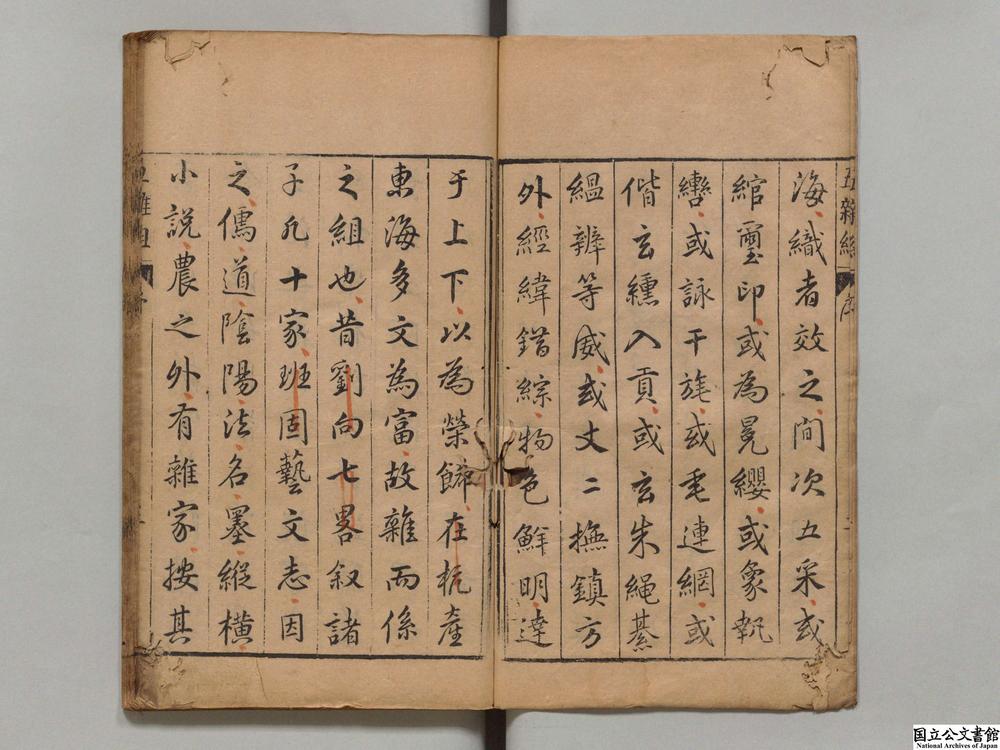 五雜組 序
海織者效之間次五采或
綰璽印或為冕纓或象軹
轡或詠干旄或垂連網或
偕玄纁入貢或玄朱繩綦
縕辨等威或丈二撫鎮方
外經緯錯綜物色鮮明達
于上下以為榮飾在杭產
東海多文為富故雜而係
之組也昔劉向七畧叙諸
子凡十家班固藝文志因
之儒道陰陽法名墨縱橫
小說農之外有雜家按其
国立公文書館
National Archives of Japan